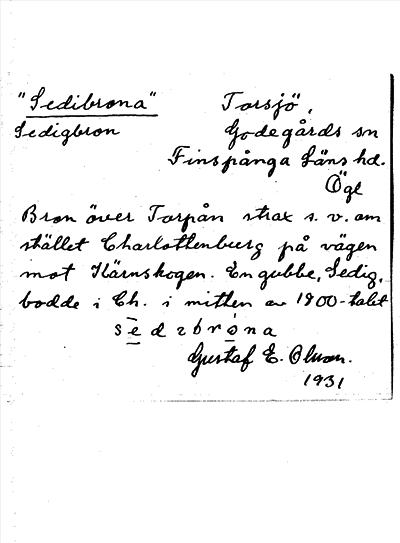 "Sedibrona" Torsjö,
Sedigbron Godegårds sn
Finspånga läns hd.
Ögl
Bron över Torpån strax s.v. om
stället Charlottenburg på vägen
mot Kärnskogen. En gubbe, Sedig,
bodde i Ch. i mitten av 1800-talet
s e d ı b r o n a
Gustaf E. Olsson.
1931